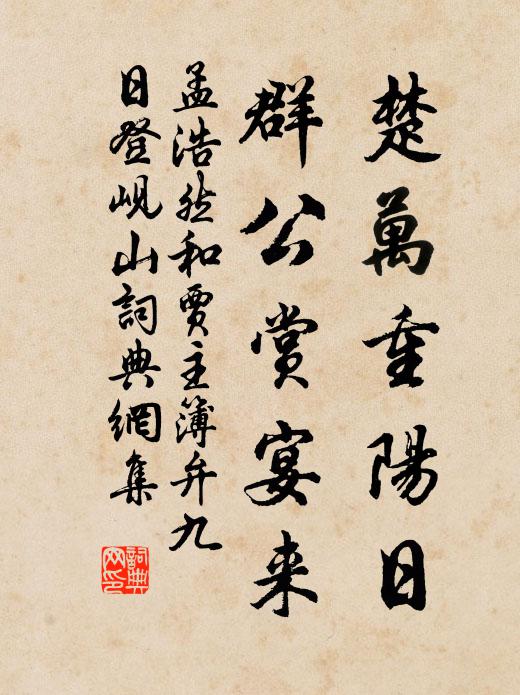 楚萬重陽日
群公賞宴来
孟浩然和賈主簿弁九
日登峴山詞典網集
詞典网印